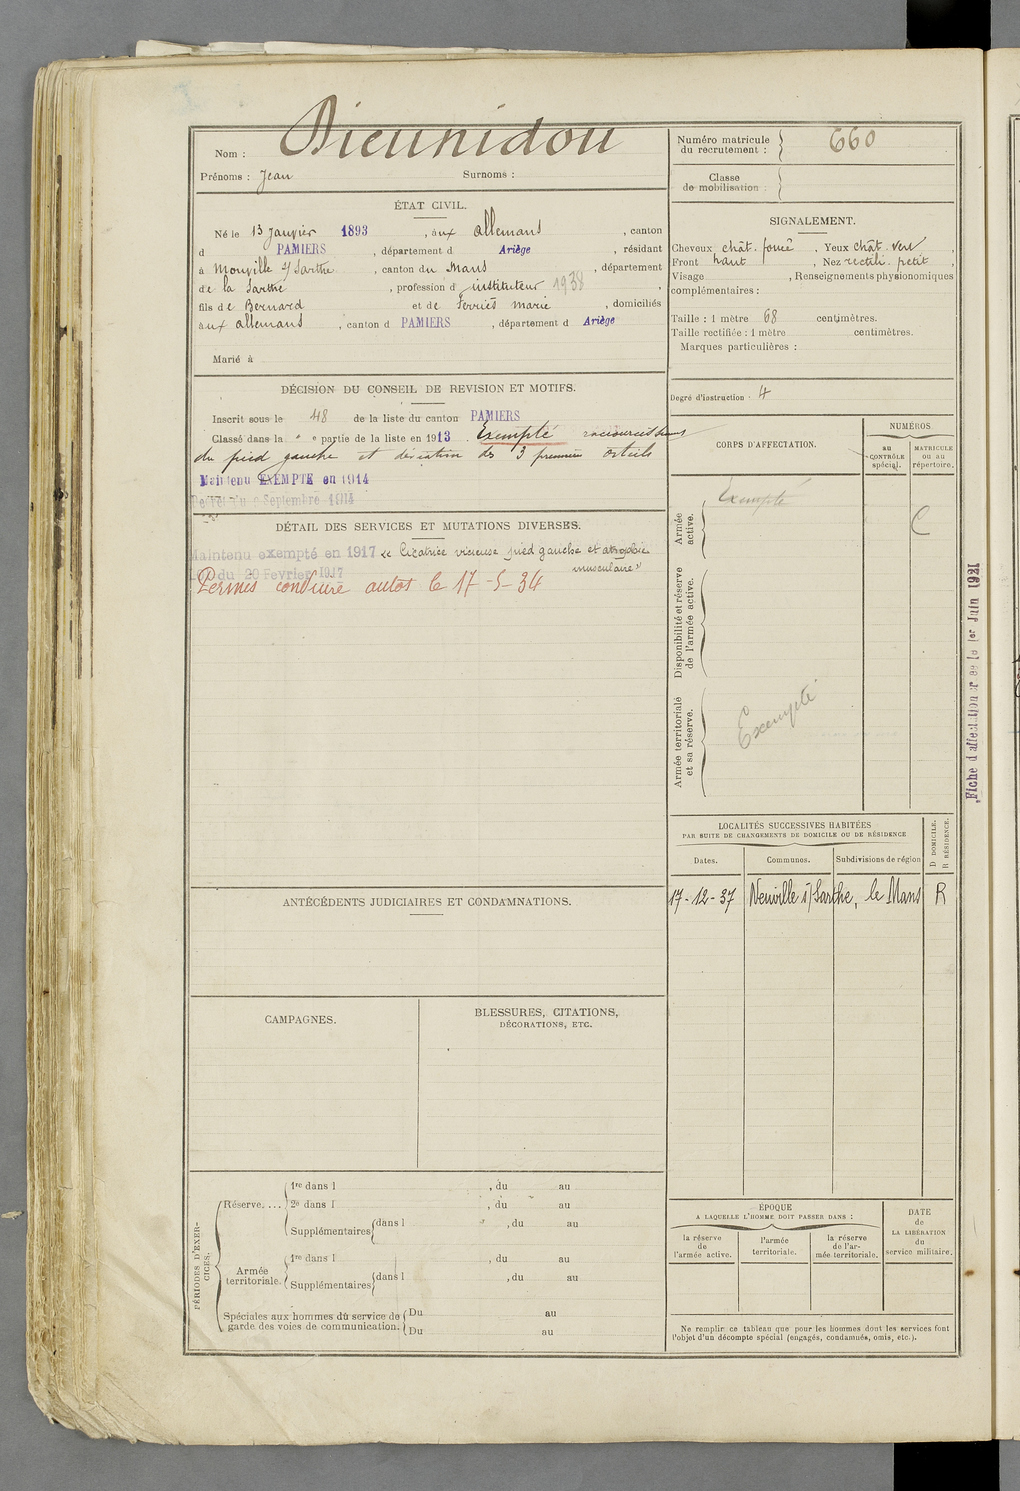 Nom : Dieunidou
Prénoms : Jean Surnoms :
ÉTAT CIVIL.
Né le 13 janvier 1893, aux allemans, canton
d PAMIERS, département d Ariège, résidant
à Monville s/ Sarthe, canton du Mans, département
de la Sarthe, profession d instituteur 1938,
fils de Bernard et de Ferriès marie, domiciliés
aux allemans, canton d PAMIERS, département d Ariège
Marié à
DÉCISION DU CONSEIL DE REVISION ET MOTIFS.
Inscrit sous le 48 de la liste du canton PAMIERS
Classé dans la " e partie de la liste en 1913. Exempté raccourcissement
du pied gauche et déviation des 3 premiers orteils
Maintenu EXEMPTÉ en 1914
Décret du 9 Septembre 1914
DÉTAIL DES SERVICES ET MUTATIONS DIVERSES.
Maintenu exempté en 1917 Cicatrice vicieuse pied gauche et atrophie
musculaire"
Loi du 20 Fevrier 1917
Permis conduire autos le 17-5-34
ANTÉCÉDENTS JUDICIAIRES ET CONDAMNATIONS.
CAMPAGNES.
BLESSURES, CITATIONS,
DÉCORATIONS, ETC.
PÉRIODES D'EXERCICES.
Réserve....
1re dans l , du au
2e dans l , du au
Supplémentaires dans l , du au
Armée
territoriale.
1re dans l , du au
Supplémentaires dans l , du au
Spéciales aux hommes du service de
garde des voies de communication.
Du au
Du au
Numéro matricule
du recrutement : 660
Classe
de mobilisation :
SIGNALEMENT.
Cheveux chât. foncé, Yeux chât. vert,
Front haut, Nez rectili. petit,
Visage , Renseignements physionomiques
complémentaires :
Taille : 1 mètre 68 centimètres.
Taille rectifiée : 1 mètre centimètres.
Marques particulières :
Degré d'instruction : 4
CORPS D'AFFECTATION.
NUMÉROS
au
CONTRÔLE
spécial.
MATRICULE
ou au
répertoire.
Armée
active.
Exempté
C
Disponibilité et réserve
de l'armée active.
Armée territoriale
et sa réserve.
Exempté
Fiche d'affectation de le 1er Juin 1921
LOCALITÉS SUCCESSIVES HABITÉES
PAR SUITE DE CHANGEMENTS DE DOMICILE OU DE RÉSIDENCE
D DOMICILE.
R RÉSIDENCE.
Dates. Communes. Subdivisions de région
17-12-37 Neuville s/ Sarthe, le Mans R
ÉPOQUE
A LAQUELLE L'HOMME DOIT PASSER DANS :
la réserve
de
l'armée active.
l'armée
territoriale.
la réserve
de l'ar-
mée territoriale.
DATE
de
LA LIBÉRATION
du
service militaire.
Ne remplir ce tableau que pour les hommes dont les services font
l'objet d'un décompte spécial (engagés, condamnés, omis, etc.).